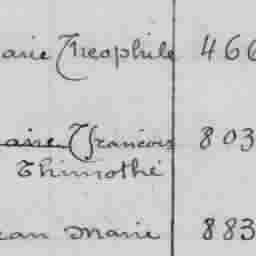 arie Theophile 466
aire François 803
Thimothé
ean Marie 883